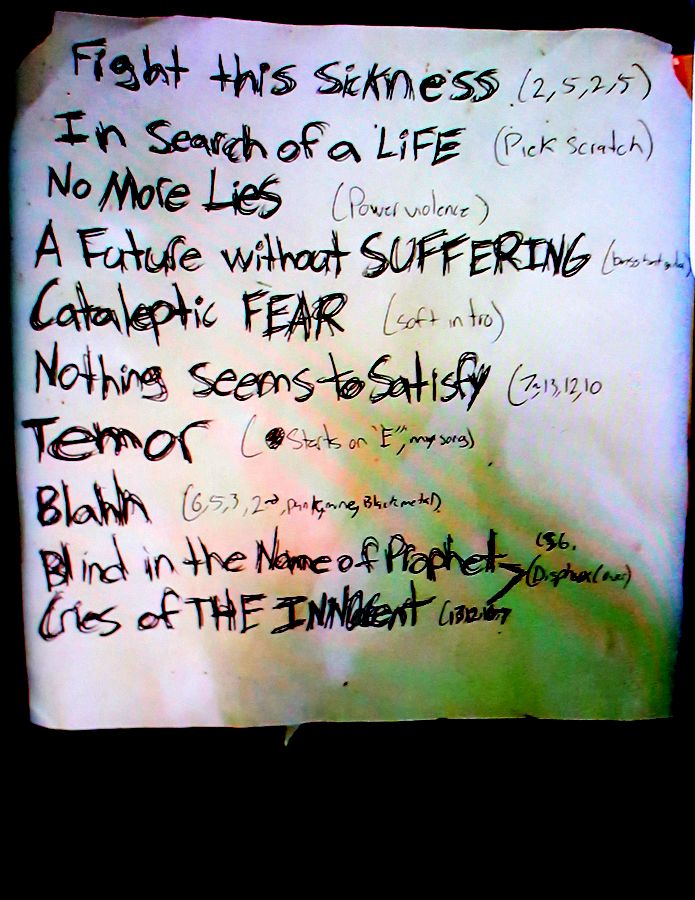 Fight this Sickness (2,5,2,5)
In Search of a LiFE (Pick Scratch)
No More Lies (Power violence)
A Future without SUFFERING
Cataleptic FEAR (soft intro)
Nothing seems to Satisfy (7,13,12,10
Temor (Starts on "E", my song)
Blahh (6,5,3,2
Blind in the Name of Prophet
Cries of THE INNOcent